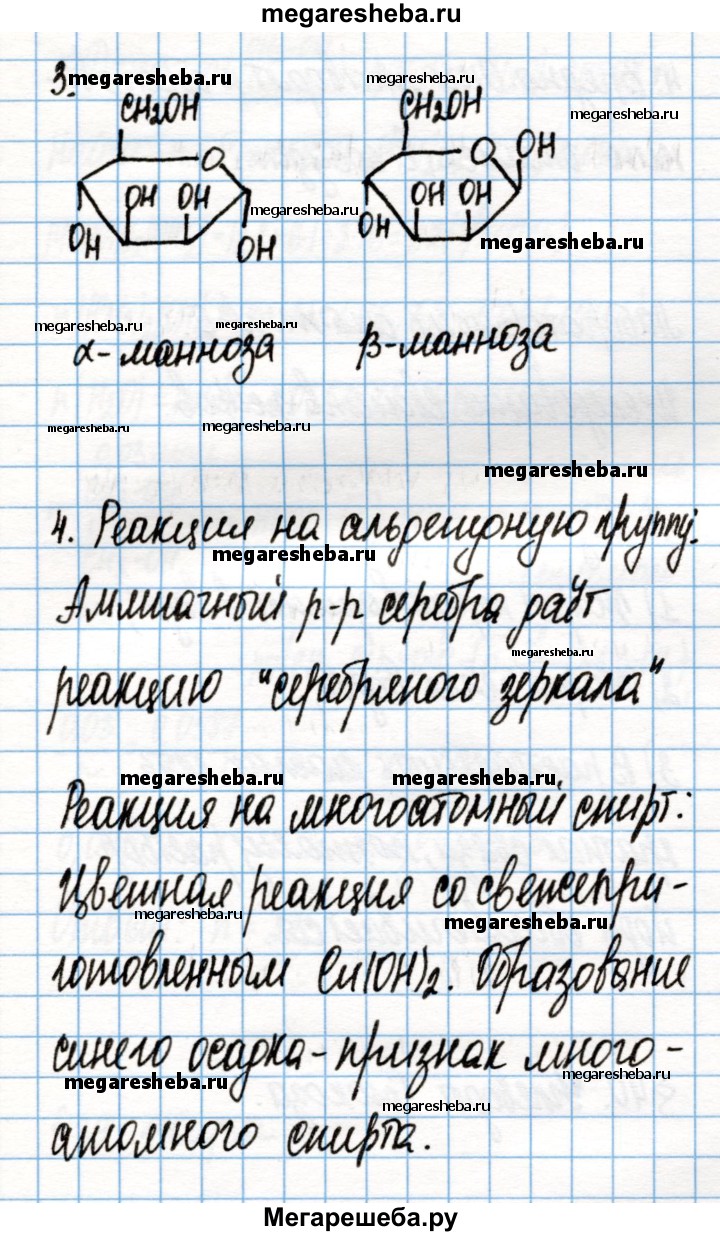 megaresheba.ru
3. megaresheba.ru megaresheba.ru
megaresheba.ru
CH2OH CH2OH
O O OH
OH OH OH OH
megaresheba.ru
OH OH OH
megaresheba.ru
megaresheba.ru megaresheba.ru
α-манноза β-манноза
megaresheba.ru megaresheba.ru
megaresheba.ru
4. Реакция на альдегидную группу:
megaresheba.ru
Аммиачный р-р серебра даёт
megaresheba.ru
реакцию "серебряного зеркала"
megaresheba.ru megaresheba.ru
Реакция на многоатомный спирт:
Цветная реакция со свежепри-
megaresheba.ru megaresheba.ru
готовленным Cu(OH)2. Образование
синего осадка-признак много-
megaresheba.ru megaresheba.ru
megaresheba.ru
атомного спирта.
Мегарешеба.ру